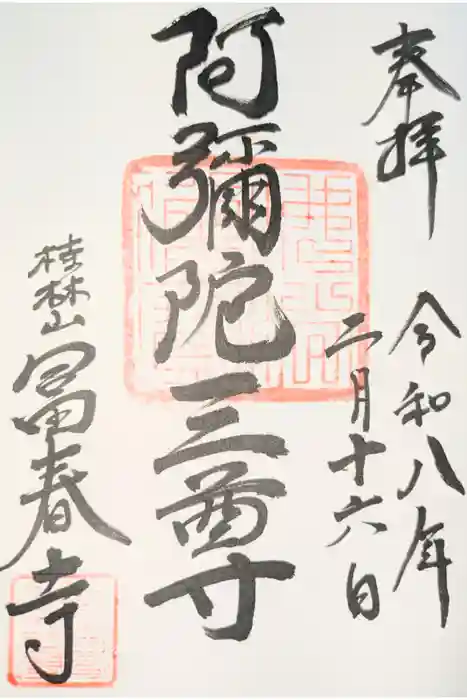 奉拝
令和八年
二月十六日
阿彌陀三尊
桂林山
冨春寺